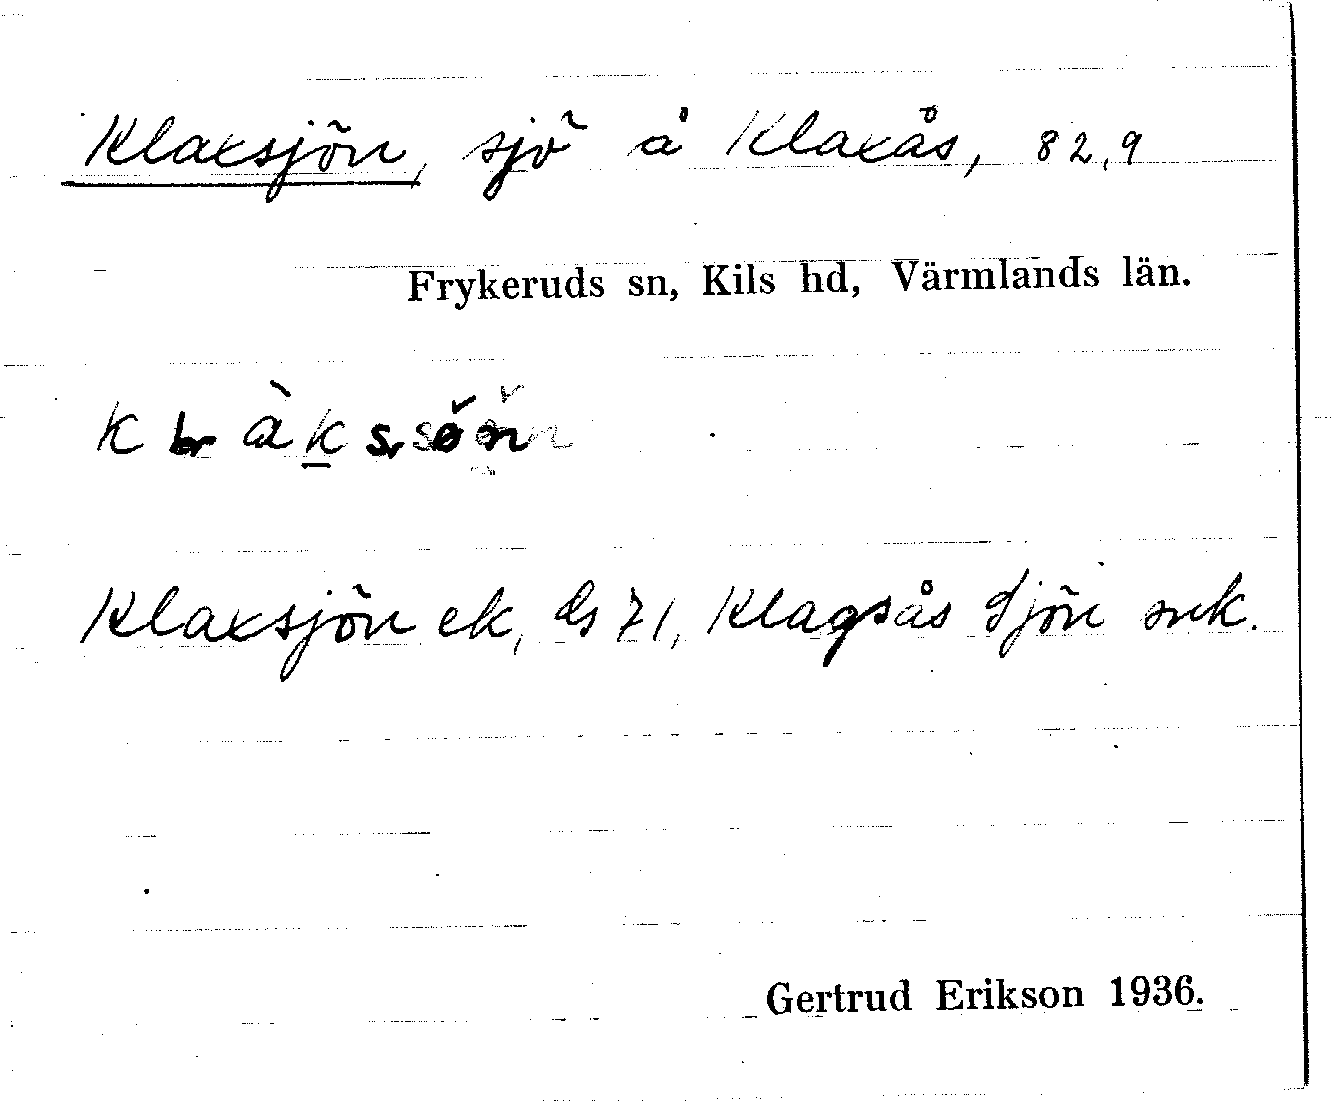 Klaxsjön, sjö å Klaxås, 82,9
Frykeruds sn, Kils hd, Värmlands län.
Klaxsjön ek, ds 71, Klagsås Sjön snk.
Gertrud Erikson 1936.